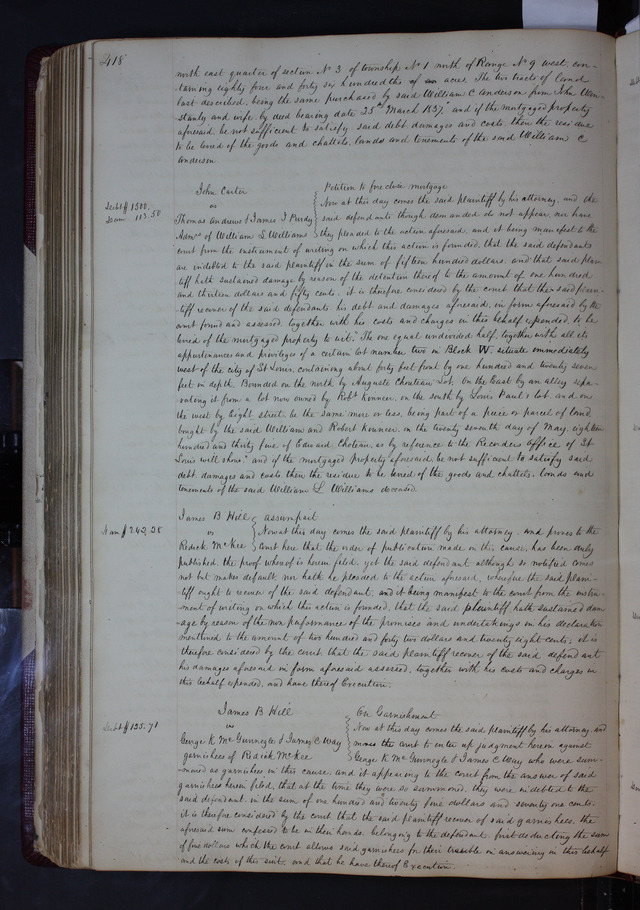 418
north east quarter of section No 3 of township No 1 north of Range No 9 west, con-
taining eighty four and forty six hundredths of an acres. The two tracts of land
last described, being the same purchased by said William C Anderson from John
and wife by deed bearing date 25th March 1837, and if the mortgaged property
aforesaid be not sufficient to satisfy said debt damages and costs then the residue
to be levied of the goods and chattels, lands and tenements of the said William C
Anderson
John Carter
vs
Thomas Andrews & James J Purdy
Admrs of William L Williams
Debt $ 1500.
Dam 113.50
Petition to foreclose mortgage
Now at this day comes the said plaintiff by his attorney, and the
said defendants though demanded do not appear, nor have
they pleaded to the action aforesaid, and it being manifest to the
court from the instrument of writing on which this action is founded, that the said defendants
are indebted to the said plaintiff in the sum of fifteen hundred dollars, and that said plain-
tiff hath sustained damage by reason of the detention thereof to the amount of one hundred
and thirteen dollars and fifty cents, it is therefore considered by the court that the said plain-
tiff recover of the said defendants his debt and damages aforesaid, in form aforesaid by the
court found and assessed, together with his costs and charges in this behalf expended, to be
levied of the mortgaged property to wit, "The one equal undivided half, together with all its
appurtenances and privileges of a certain lot number two in Block W. situate immediately
west of the city of St Louis, containing about forty feet front by one hundred and twenty seven
feet in depth. Bounded on the north by Auguste Chouteau Lot, on the East by an alley sepa-
rating it from a lot now owned by Robt, on the south by Louis Paul's lot and on
the west by Eight street, be the same more or less, being part of a piece or parcel of land
bought by the said William and Robert, on the twenty seventh day of May, eighteen
hundred and thirty five of Edward Choteau, as by reference to the Recorders office of St
Louis will show" and if the mortgaged property aforesaid be not sufficient to satisfy said
debt, damages and costs then the residue to be levied of the goods and chattels, lands and
tenements of the said William L Williams deceased.
James B Hill
vs
Redick McKee
Dam $ 242.28
assumpsit
Now at this day comes the said plaintiff by his attorney, and proves to the
court here that the order of publication made in this cause, has been duly
published, the proof whereof is herein filed, yet the said defendant although so notified comes
not but makes default, nor hath he pleaded to the action aforesaid, wherefore the said plain-
tiff ought to recover of the said defendant, and it being manifest to the court from the instru-
ment of writing on which this action is founded, that the said plaintiff hath sustained dam-
age by reason of the non performance of the promises and undertakings in his declaration
mentioned to the amount of two hundred and forty two dollars and twenty eight cents, it is
therefore considered by the court that the said plaintiff recover of the said defendant
his damages aforesaid in form aforesaid assessed, together with his costs and charges in
this behalf expended, and have thereof Execution.
James B Hill
vs
George K McGunnegle & James C Way
garnishees of Redick McKee
Debt $ 125.71
On Garnishment
Now at this day comes the said plaintiff by his attorney, and
moves the court to enter up judgment herein against
George K McGunnegle & James C Way who were sum-
moned as garnishees in this cause, and it appearing to the court from the answer of said
garnishees herein filed, that at the time they were so summoned, they were indebted to the
said defendant in the sum of one hundred and twenty five dollars and seventy one cents.
it is therefore considered by the court that the said plaintiff recover of said garnishees, the
aforesaid sum confessed to be in their hands belonging to the defendant, first deducting the sum
of five dollars which the court allows said garnishees for their trouble in answering in this behalf
and the costs of this suit, and that he have thereof Execution.